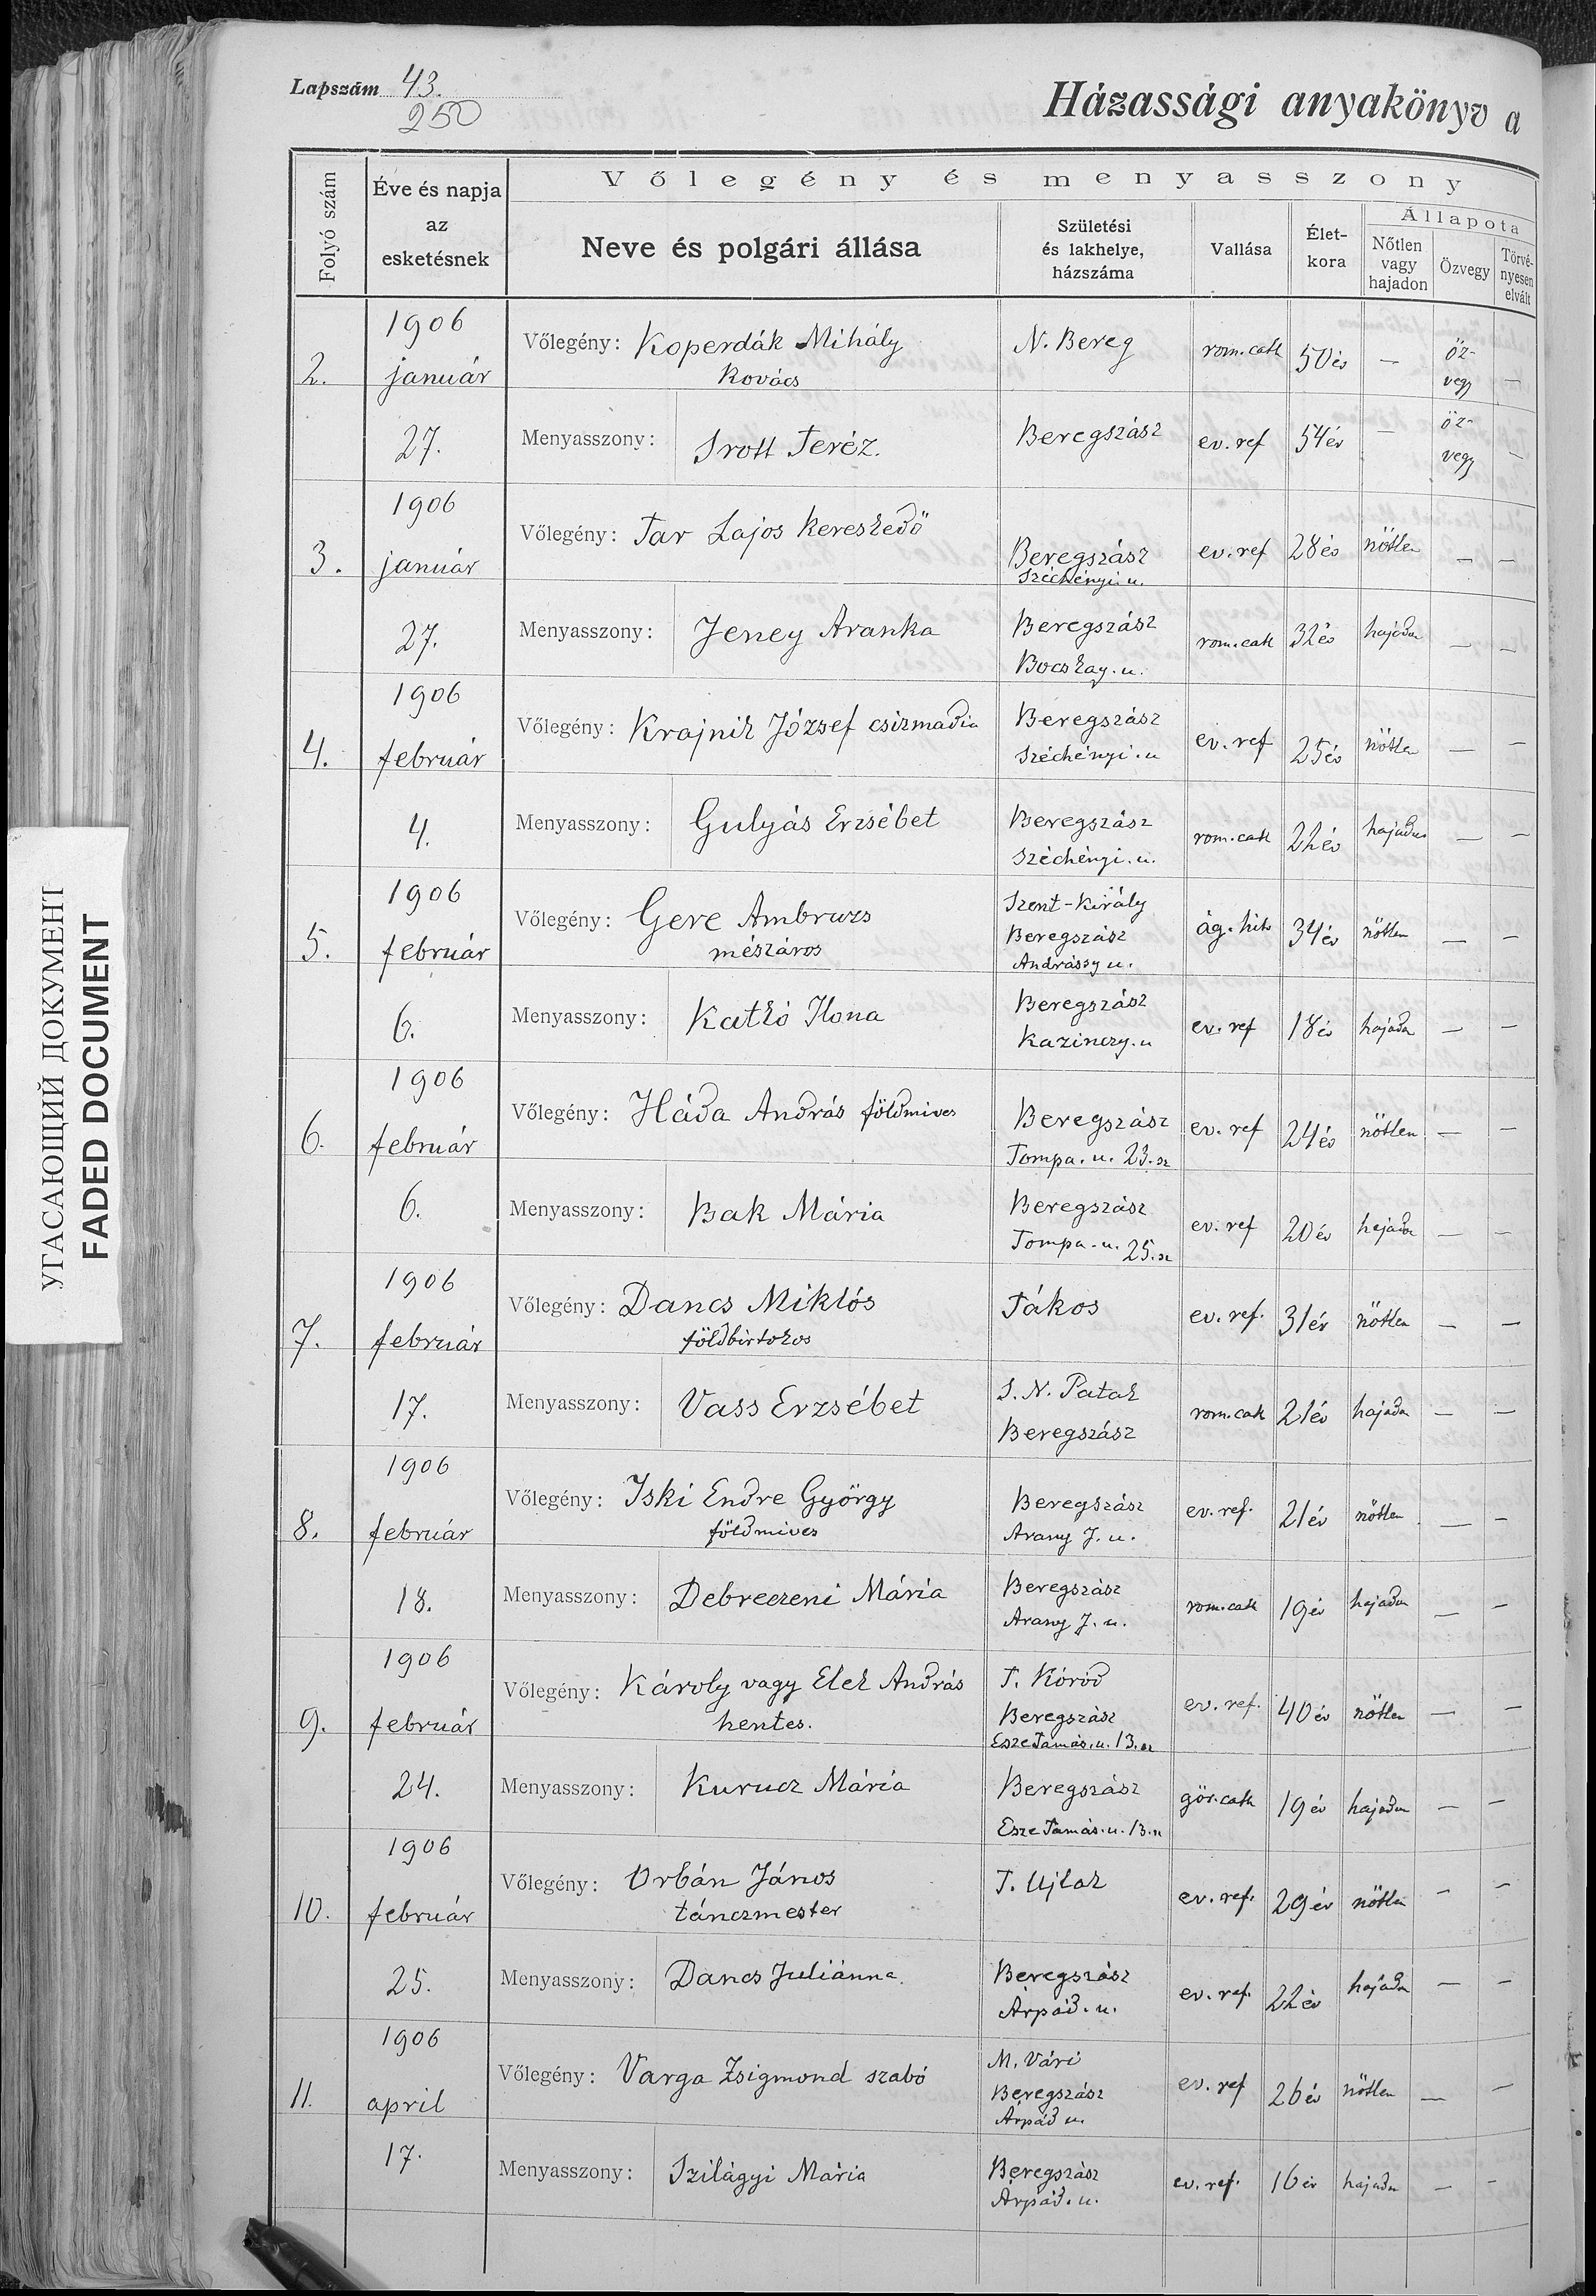 Lapszám 43.
250
Házassági anyakönyv a
Folyó szám
Éve és napja az esketésnek
Vőlegény és menyasszony
Neve és polgári állása
Születési és lakhelye, házszáma
Vallása
Élet-kora
Állapota
Nőtlen vagy hajadon
Özvegy
Törvé-nyesen elvált
2. 1906 január 27.
Vőlegény: Koperdák Mihály Kovács N. Bereg rom. cath 50 év — öz-vegy —
Menyasszony: Trott Teréz. Beregszász ev. ref 54 év — öz-vegy —
3. 1906 január 27.
Vőlegény: Tar Lajos kereskedő Beregszász Széchényi u. ev. ref 28 év nőtlen — —
Menyasszony: Jeney Aranka Beregszász Bocskay. u. rom. cath 32 év hajadon — —
4. 1906 február 4.
Vőlegény: Krajnik József csizmadia Beregszász Széchényi. u ev. ref 25 év nőtlen — —
Menyasszony: Gulyás Erzsébet Beregszász Széchényi. u. rom. cath 22 év hajadon — —
5. 1906 február 6.
Vőlegény: Gere Ambruzs mészáros Szent-Király Beregszász Andrássy u. ág. hitv 34 év nőtlen — —
Menyasszony: Katkó Ilona Beregszász Kazinczy. u ev. ref 18 év hajadon — —
6. 1906 február 6.
Vőlegény: Háda András földmives Beregszász Tompa. u. 23. sz ev. ref 24 év nőtlen — —
Menyasszony: Bak Mária Beregszász Tompa. u. 25. sz ev. ref 20 év hajadon — —
7. 1906 február 17.
Vőlegény: Dancs Miklós földbirtokos Tákos ev. ref. 31 év nőtlen — —
Menyasszony: Vass Erzsébet S. N. Patak Beregszász rom. cath 21 év hajadon — —
8. 1906 február 18.
Vőlegény: Iski Endre György földmives Beregszász Arany J. u. ev. ref. 21 év nőtlen — —
Menyasszony: Debreczeni Mária Beregszász Arany J. u. rom. cath 19 év hajadon — —
9. 1906 február 24.
Vőlegény: Károly vagy Elek András hentes. T. Kóród Beregszász Esze Tamás. u. 13. sz ev. ref. 40 év nőtlen — —
Menyasszony: Kurucz Mária Beregszász Esze Tamás. u. 13. sz gör. cath 19 év hajadon — —
10. 1906 február 25.
Vőlegény: Orbán János tánczmester T. Ujlak ev. ref. 29 év nőtlen — —
Menyasszony: Dancs Juliánna. Beregszász Árpád. u. ev. ref. 22 év hajadon — —
11. 1906 april 17.
Vőlegény: Varga Zsigmond szabó M. Vári Beregszász Árpád u. ev. ref 26 év nőtlen — —
Menyasszony: Szilágyi Mária Beregszász Árpád. u. ev. ref. 16 év hajadon — —
УГАСАЮЩИЙ ДОКУМЕНТ
FADED DOCUMENT